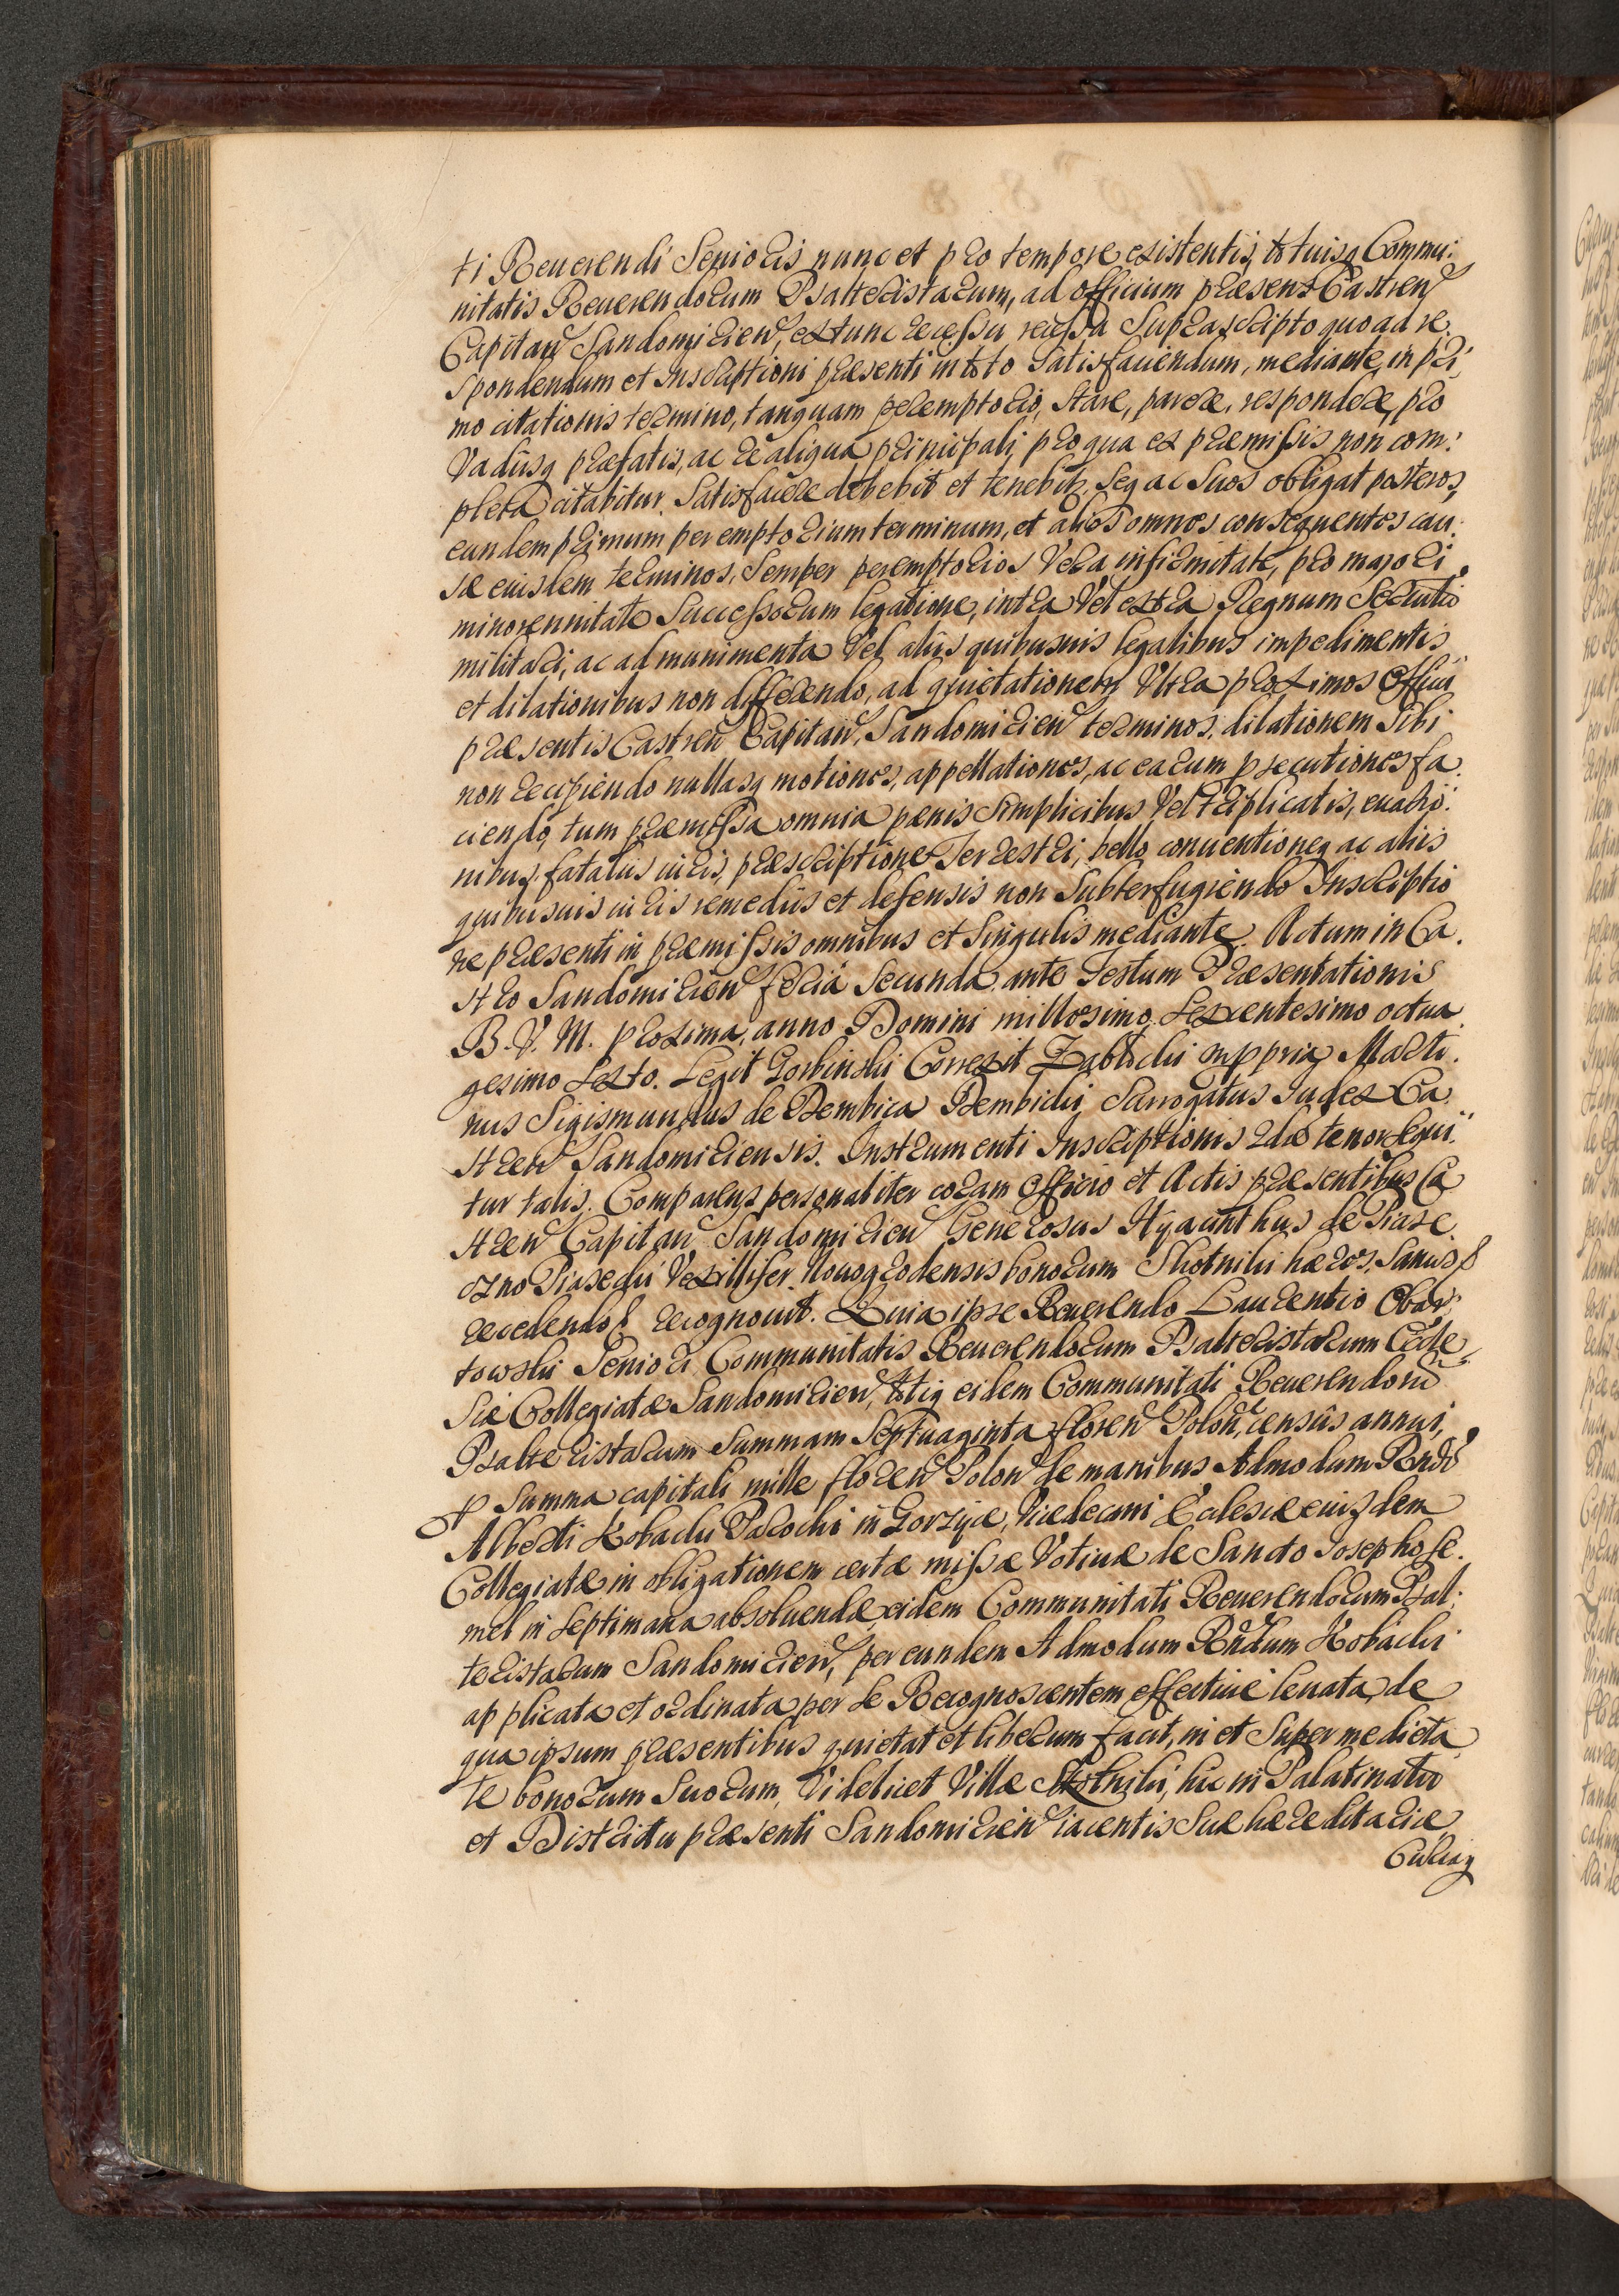 ti Reuerendi Senioris nunc et pro tempore existentis, totiusq Commu:
nitatis Reuerendorum Psalteristarum, ad officium præsens Castren
Capitan Sandomirien, extunc recessu recissa suprascripto quo ad re.
spondendum et Inscriptioni præsenti in toto satisfaciendum, mediante, in pri,
mo citationis termino, tanquam peremptorio, stare, parere, respondere, pro
Vadiisq præfatis, ac re aliqua principali, pro qua ex præmissis non com:
pleta citabitur, satisfacere debebit et tenebitr, seq ac suos obligat posteros,
eundem primum peremptorium terminum, et alios omnes consequentes cau.
sæ eiusdem terminos, semper peremptorios Vera infirmitate, pro majori
minorennitate Successorum legatione, intra Vel extra Regnum Seruitio
militari, ac ad munimenta Vel aliis quibusuis legalibus impedimentis
et dilationibus non differendo, ad quietationem Vltra proximos Officii
præsentis Castren Capitan, Sandomirien terminos, dilationem Sibi
non recipiendo nullasq motiones, appellationes, ac earum prosecutiones fa.
ciendo, tum præmissa omnia pænis simplicibus Vel triplicatis, euasio:
nibusq fatalis iuris, præscriptione Terrestri, bello, conuentioneq ac aliis
quibusuis iuris remediis et defensis non Subterfugiendo Inscriptio
ne præsenti in præmissis omnibus et singulis mediante. Actum in Ca.
stro Sandomirien feria secunda ante Festum Præsentationis
B. V. M. proxima, anno Domini millesimo, Sexcentesimo octua
gesimo sexto. Legit Gorbinski Correxit Zablocki mppria Marti.
nus Sigismundus de Dembica Dembicki Surrogatus Judex Ca.
stren Sandomiriensis. Instrumenti Inscriptionis 2dæ tenor sequi:
tur talis. Comparens personaliter coram Officio et Actis præsentibus Ca
stren Capitan Sandomirien Generosus Hyacinthus de Piase
czno Piasecki Vexillifer Nouogrodensis bonorum Skotniki hæres, Sanus p
recedendo p recognouit. Quia ipse Reuerendo Laurentio Obar:
towski Seniori Communitatis Reuerendorum Psalteristarum Eccle
siæ Collegiatæ Sandomirien, totiq eidem Communitati Reuerendorū
Psalteristarum Summam Septuaginta floren Polon, census annui,
A Summa capitali mille floren Polon de manibus Admodum Rndi
Alberti Kobacki Parochi in Gorzyce, Vicedecani Ecclesiæ eiusdem
Collegiatæ in obligationem certæ missæ Votiuæ de Sancto Josepho se.
mel in septimana absoluendæ, eidem Communitati Reuerendorum Psal:
teristarum Sandomirien, per eundem Admodum Rndum Kobacki
applicata et ordinata, per se Recognoscentem effectiuè leuata, de
qua ipsum præsentibus quietat et liberum facit, in et super medieta
te bonorum Suorum, Videlicet Villæ Skotniki, hic in Palatinatu
et Districtu præsenti Sandomirien iacentis Suæ hæreditariæ
Curiaq